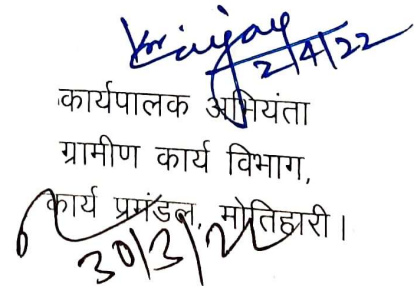 2/4/22
कार्यपालक अभियंता
ग्रामीण कार्य विभाग,
कार्य प्रमंडल, मोतिहारी।
30/3/22